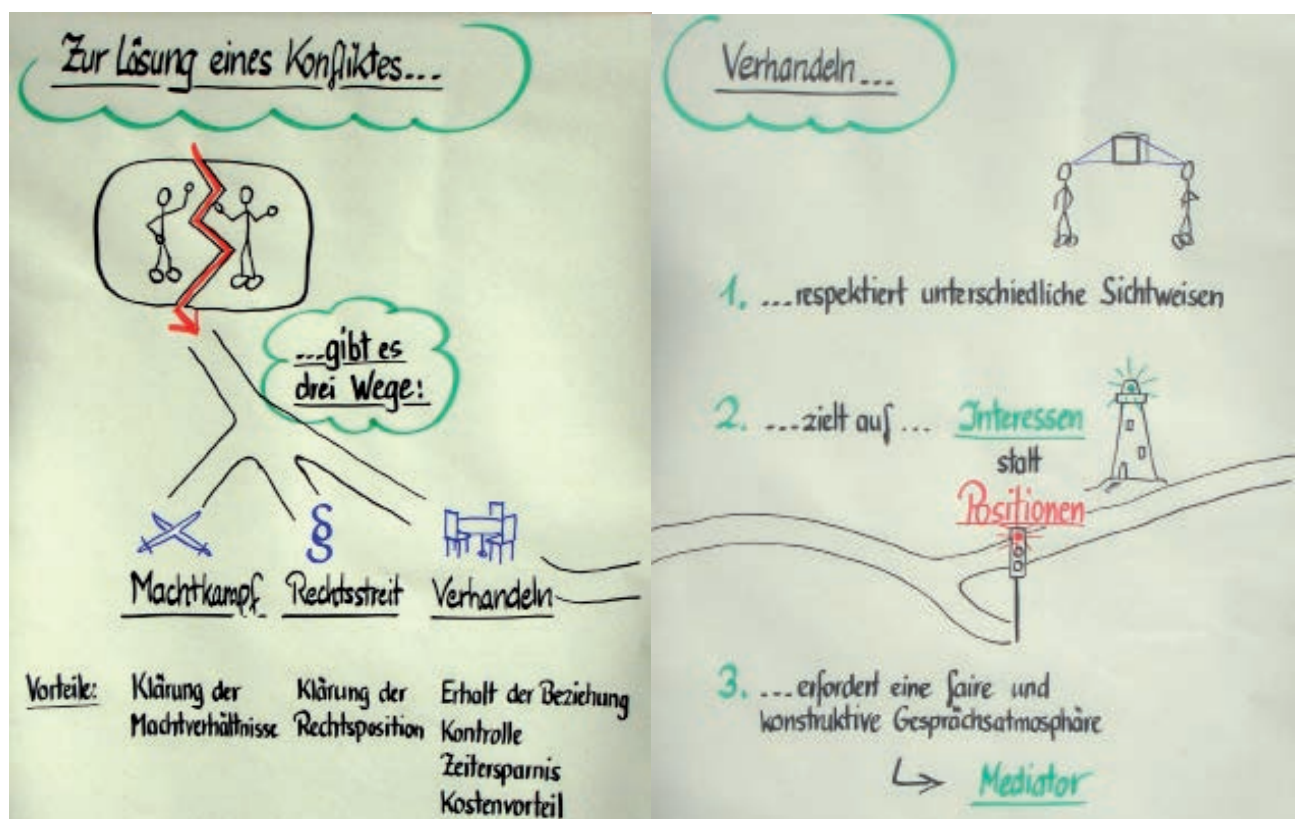 Zur Lösung eines Konfliktes...
...gibt es
drei Wege:
§
Machtkampf
Rechtsstreit
Verhandeln
Vorteile:
Klärung der
Machtverhältnisse
Klärung der
Rechtsposition
Erhalt der Beziehung
Kontrolle
Zeitersparnis
Kostenvorteil
Verhandeln...
1. ...respektiert unterschiedliche Sichtweisen
2. ...zielt auf... Interessen
statt
Positionen
3. ...erfordert eine faire und
konstruktive Gesprächsatmosphäre
Mediator